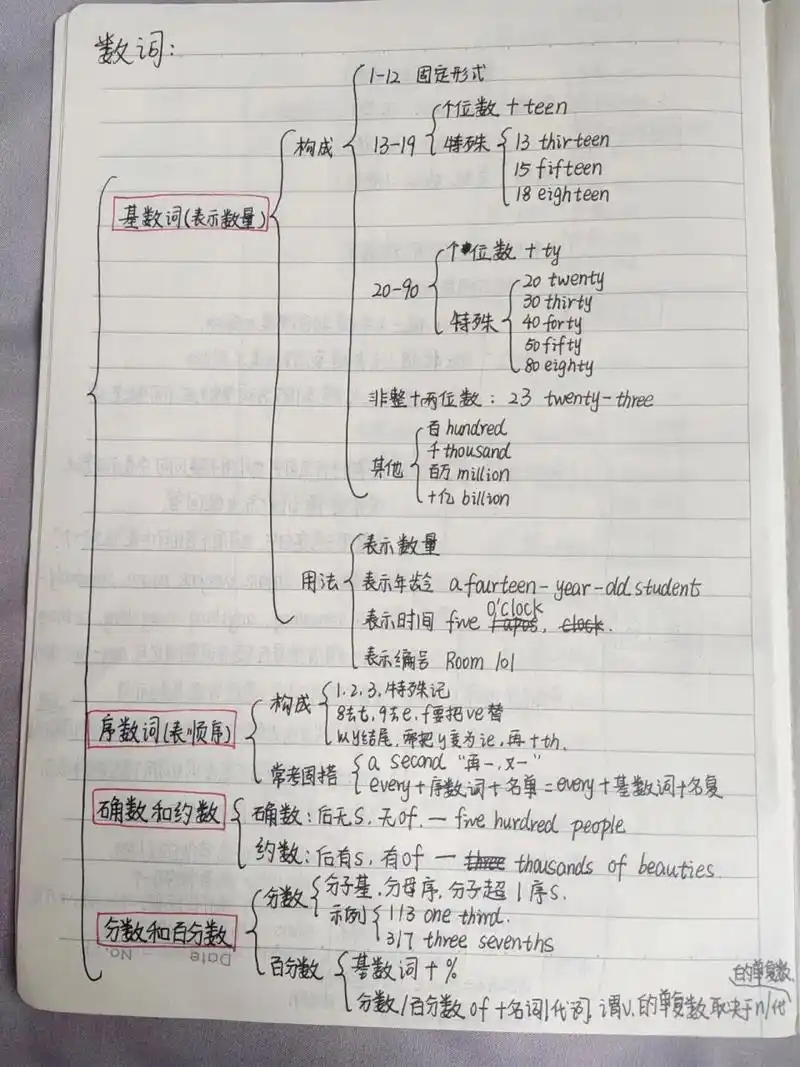 数词:
基数词(表示数量)
构成
1-12 固定形式
13-19
个位数 + teen
特殊
13 thirteen
15 fifteen
18 eighteen
20-90
个位数 + ty
特殊
20 twenty
30 thirty
40 forty
50 fifty
80 eighty
非整十两位数: 23 twenty-three
其他
百 hundred
千 thousand
百万 million
十亿 billion
用法
表示数量
表示年龄 a fourteen-year-old students
表示时间 five o'clock
表示编号 Room 101
序数词(表顺序)
构成
1,2,3,特殊记
8去t, 9去e, f要把ve替
以y结尾, 需把y变为ie, 再+th.
常考固搭
a second "再一,又一"
every+序数词+名单=every+基数词+名复
确数和约数
确数: 后无s, 无of. — five hurdred people
约数: 后有s, 有of — thousands of beauties.
分数和百分数
分数
分子基, 分母序, 分子超1序s.
示例
1/3 one third.
3/7 three sevenths
百分数
基数词 + %
分数/百分数 of +名词/代词, 谓v.的单复数取决于n/代
的单复数
Date
No.